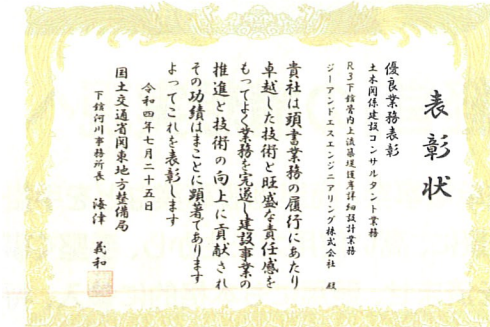 表彰状
優良業務表彰
土木関係建設コンサルタント業務
R3下館管内上流築堤護岸詳細設計業務
ジーアンドエスエンジニアリング株式会社 殿
貴社は頭書業務の履行にあたり
卓越した技術と旺盛な責任感を
もってよく業務を完遂し建設事業の
推進と技術の向上に貢献され
その功績はまことに顕著であります
よってこれを表彰します
令和四年七月二十五日
国土交通省関東地方整備局
下館河川事務所長 海津 義和